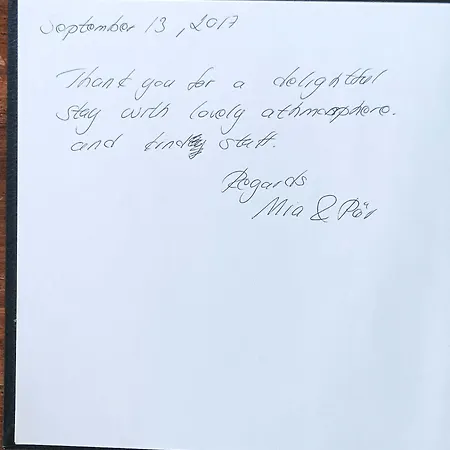 September 13, 2017
Thank you for a delightful
stay with lovely athmosphere.
and kindly staff.
Regards
Mia & Pär